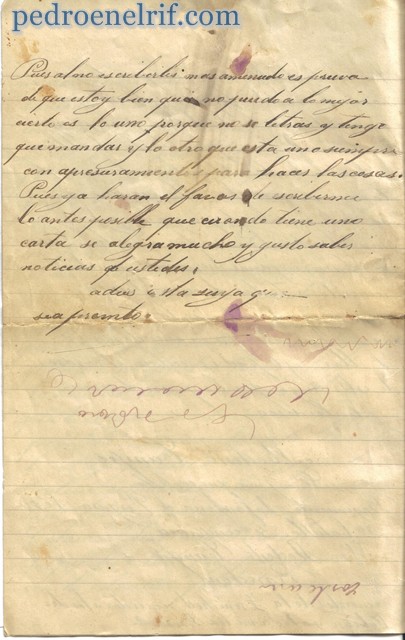 pedroenelrif.com
Pues al no escribirles mas amenudo es prueva
de que estoy bien que no puedo a lo mejor
cierto es lo uno porque no se letras y tengo
que mandar y lo otro que esta uno siempre
con apresuramientos para hacer las cosas.
Pues ya haran el favor de escribirme
lo antes posible que cuando tiene uno
carta se alegra mucho y gusto saber
noticias de ustedes.
adios
sea pronto.